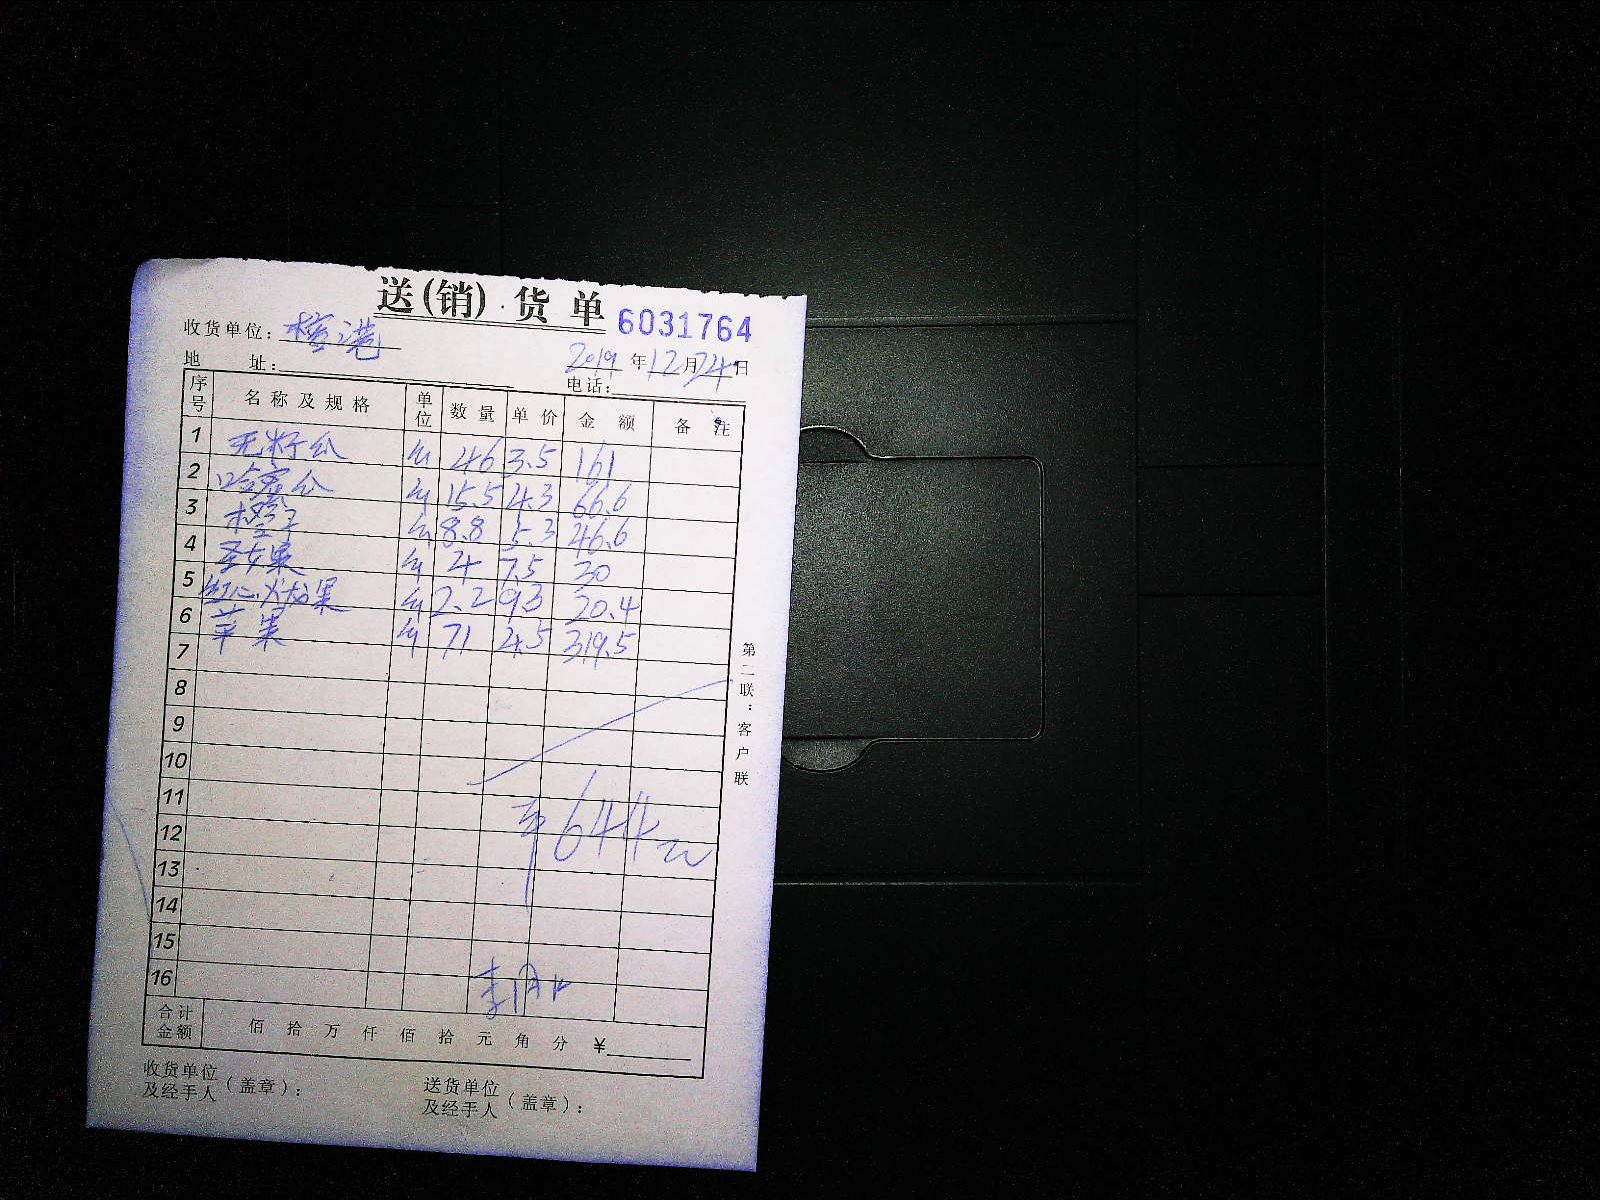 送(销)·货单 6031764
收货单位：
2019年12月24日
地 址： 电话：
序号 名称及规格 单位 数量 单价 金额 备注
1 无籽瓜 斤 46 3.5 161
2 哈密瓜 斤 15.5 4.3 66.6
3 橙子 斤 8.8 5.3 46.6
4 圣女果 斤 4 7.5 30
5 红心火龙果 斤 2.2 93 20.4
6 苹果 斤 71 4.5 319.5
7
8
9
10
11
12
13
14
15
16
¥644元
合计金额 佰 拾 万 仟 佰 拾 元 角 分 ¥
收货单位及经手人（盖章）： 送货单位及经手人（盖章）：
第二联：客户联